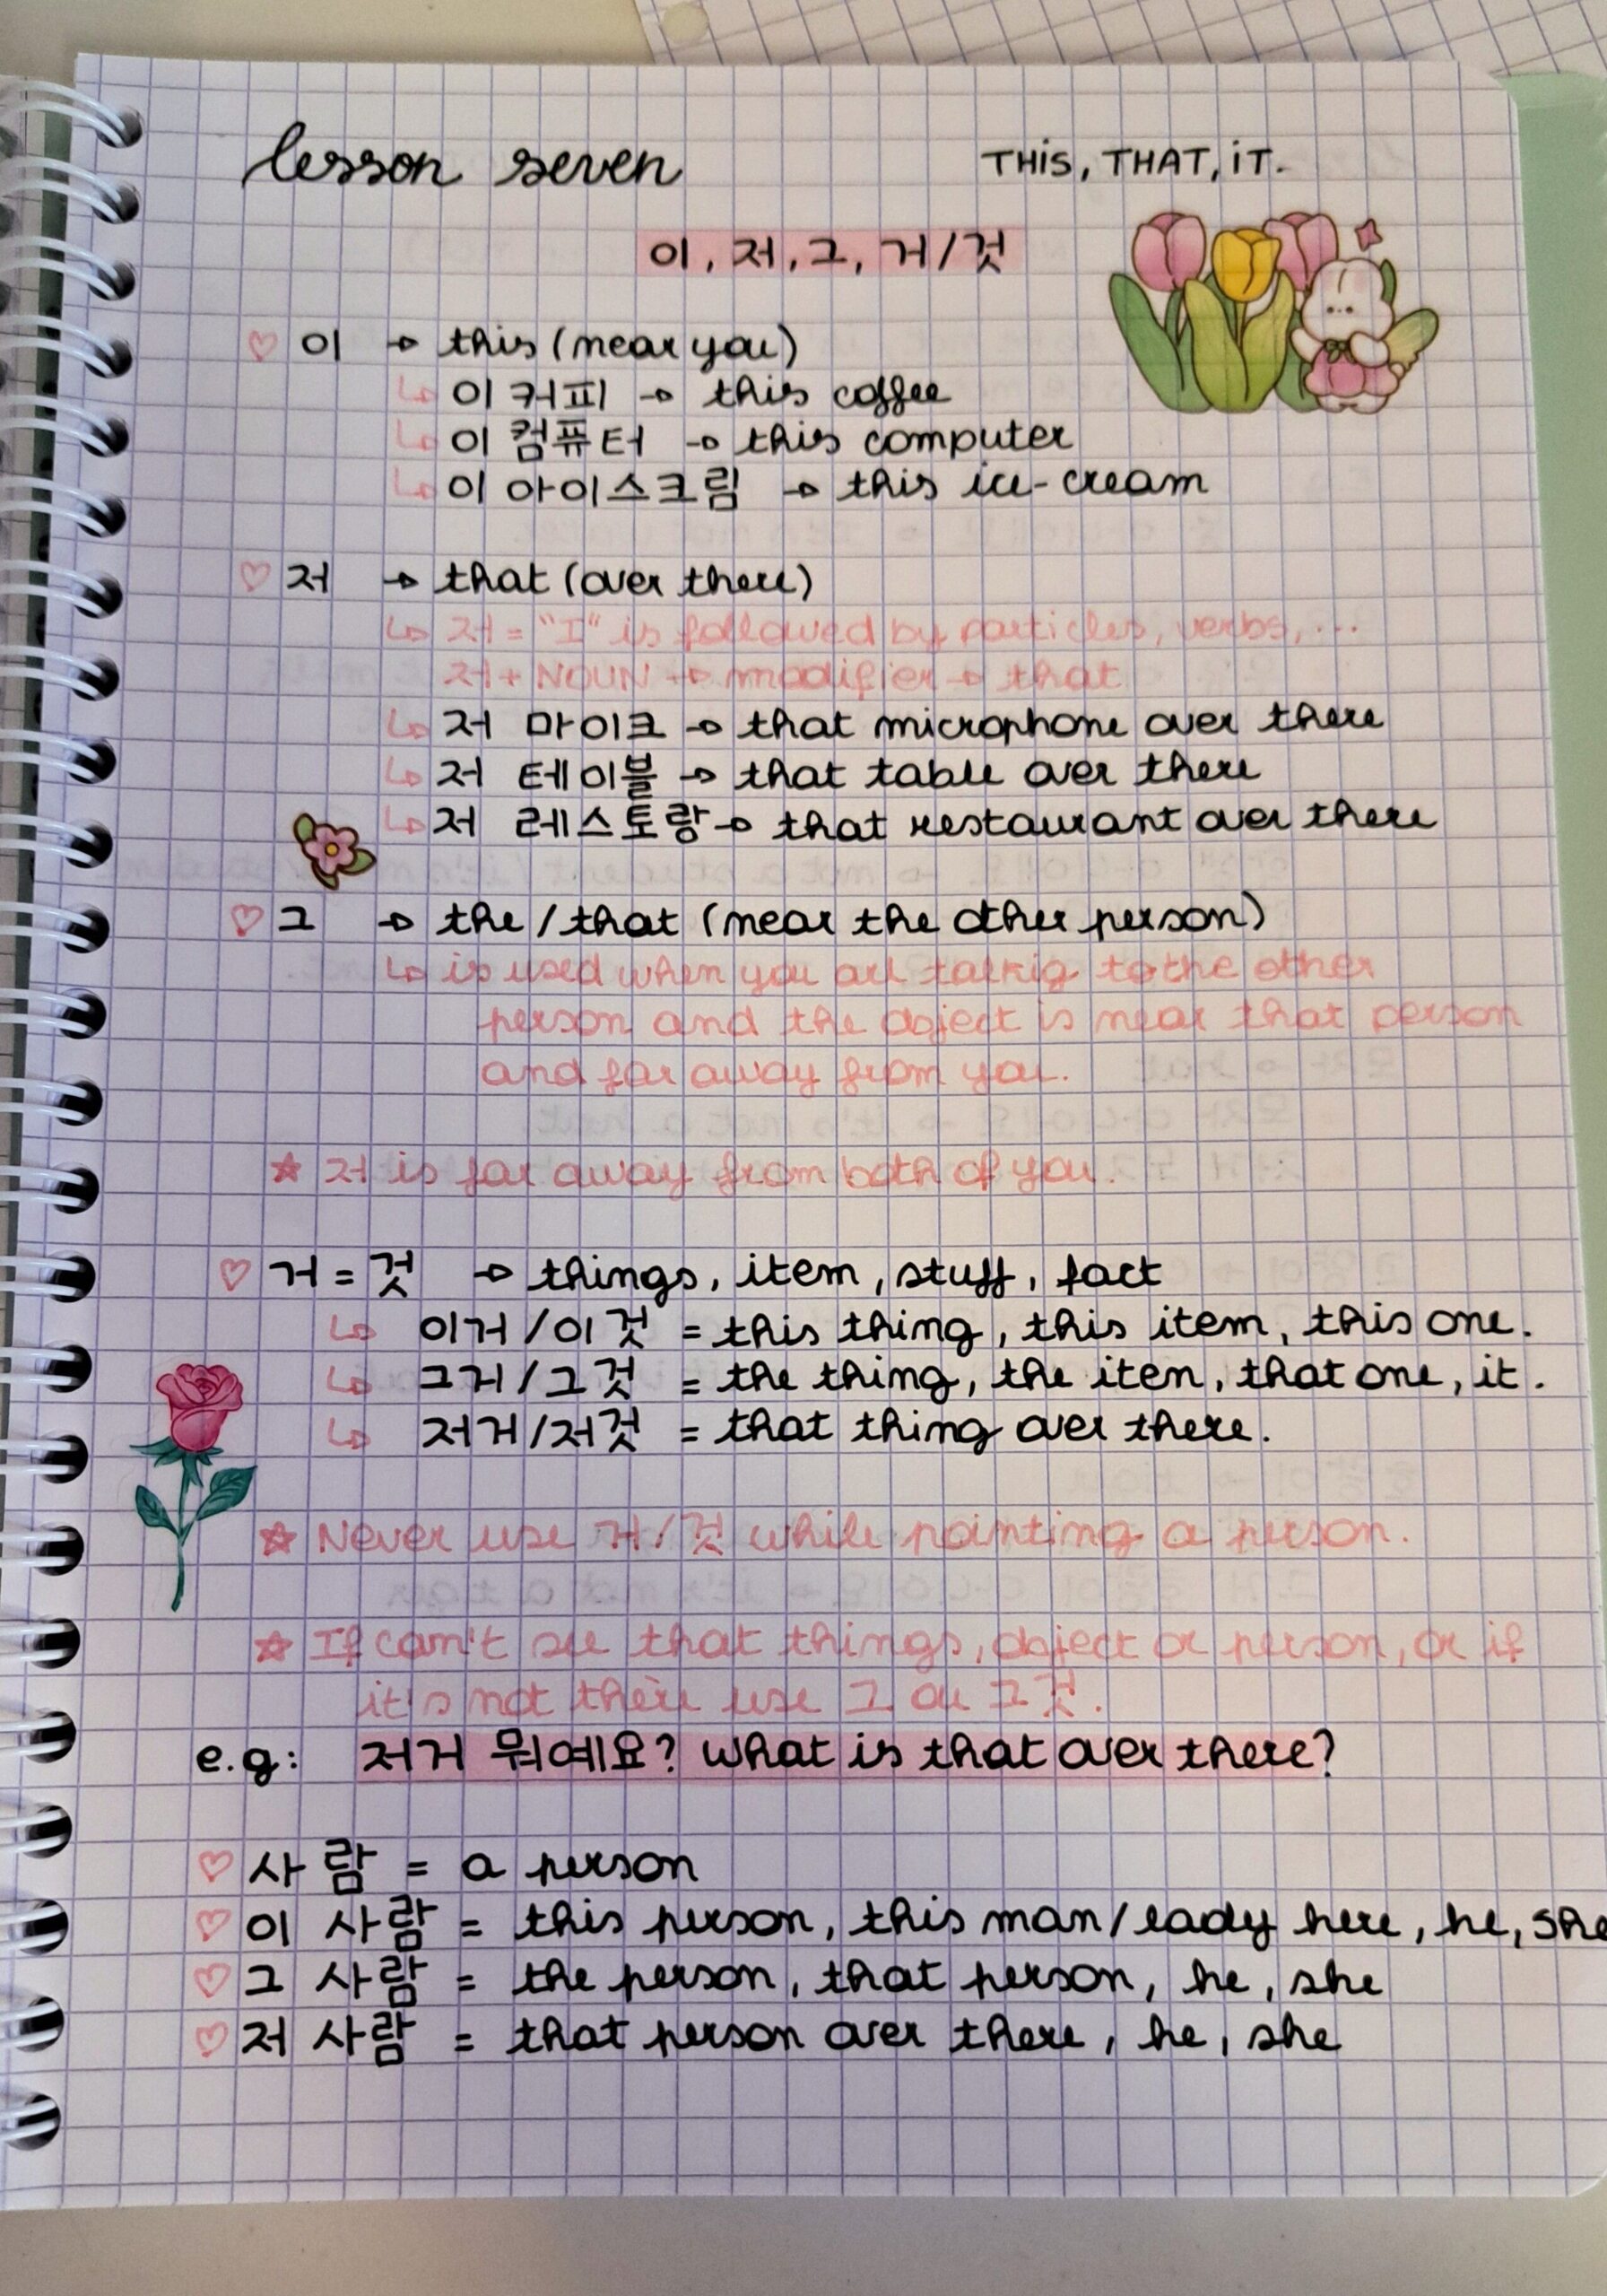 lesson seven
THIS, THAT, IT.
이, 저, 그, 거/것
♡ 이 → this (near you)
↳ 이 커피 → this coffee
↳ 이 컴퓨터 → this computer
↳ 이 아이스크림 → this ice-cream
♡ 저 → that (over there)
↳ 저 = "I" is followed by particles, verbs, ...
저 + NOUN → modifier → that
↳ 저 마이크 → that microphone over there
↳ 저 테이블 → that table over there
↳ 저 레스토랑 → that restaurant over there
♡ 그 → the / that (near the other person)
↳ is used when you are talkig to the other
person and the object is near that person
and far away from you.
☆ 저 is far away from both of you.
♡ 거 = 것 → things, item, stuff, fact
↳ 이거 / 이것 = this thing, this item, this one.
↳ 그거 / 그것 = the thing, the item, that one, it.
↳ 저거 / 저것 = that thing over there.
☆ Never use 거/것 while pointing a person.
☆ If can't see that things, object or person, or if
it's not there use 그 ou 그것.
e.g: 저거 뭐예요? What is that over there?
♡ 사람 = a person
♡ 이 사람 = this person, this man/lady here, he, she
♡ 그 사람 = the person, that person, he, she
♡ 저 사람 = that person over there, he, she